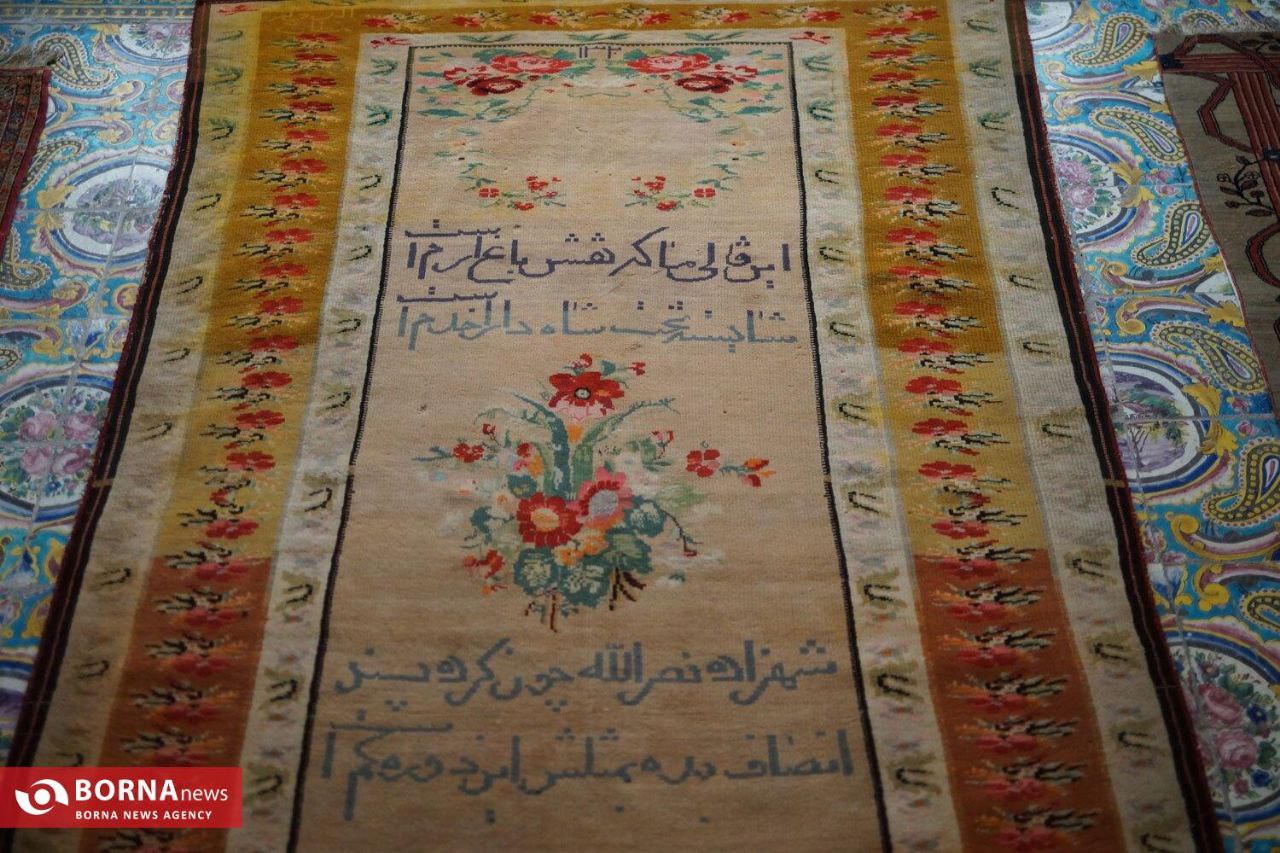 این قالی ما که نقش باغ ارم است
شایسته تخت شاه دارا خدم است
شهزاده نصرالله چون کرد پسند
انصاف بده بمثلش این دوره کم است
BORNA news
BORNA NEWS AGENCY